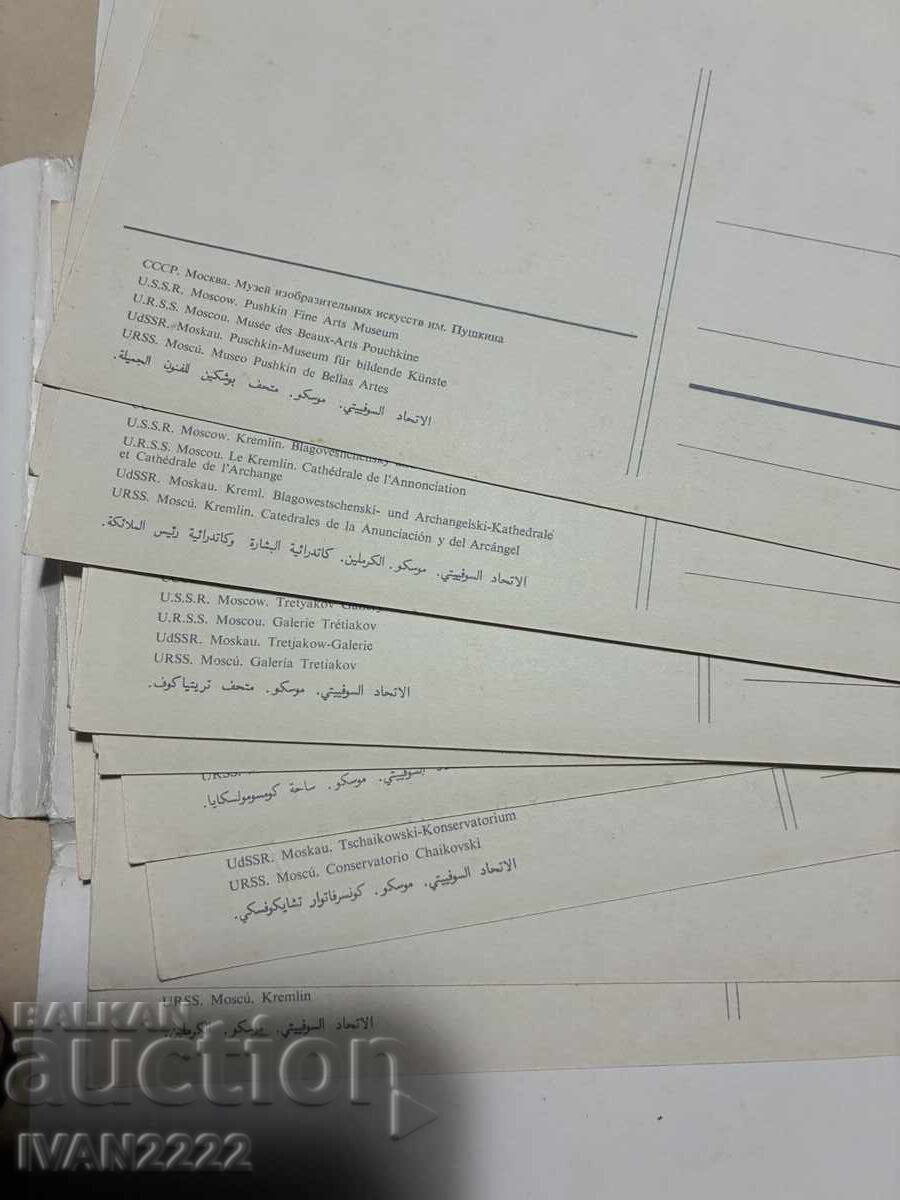 СССР. Москва. Музей изобразительных искусств им. Пушкина
U.S.S.R. Moscow. Pushkin Fine Arts Museum
U.R.S.S. Moscou. Musée des Beaux-Arts Pouchkine
UdSSR. Moskau. Puschkin-Museum für bildende Künste
URSS. Moscú. Museo Pushkin de Bellas Artes
الاتحاد السوفييتي. موسكو. متحف بوشكين للفنون الجميلة.
U.S.S.R. Moscow. Kremlin. Blagoveshchensky
U.R.S.S. Moscou. Le Kremlin. Cathédrale de l'Annonciation
et Cathédrale de l'Archange
UdSSR. Moskau. Kreml. Blagowestschenski- und Archangelski-Kathedrale
URSS. Moscú. Kremlin. Catedrales de la Anunciación y del Arcángel
الاتحاد السوفييتي. موسكو. الكرملين. كاتدرائية البشارة وكاتدرائية رئيس الملائكة.
U.S.S.R. Moscow. Tretyakov
U.R.S.S. Moscou. Galerie Trétiakov
UdSSR. Moskau. Tretjakow-Galerie
URSS. Moscú. Galería Tretiakov
الاتحاد السوفييتي. موسكو. متحف تريتياكوف.
URSS.
السوفييتي. موسكو. ساحة كومسومولسكايا.
UdSSR. Moskau. Tschaikowski-Konservatorium
URSS. Moscú. Conservatorio Chaikovski
الاتحاد السوفييتي. موسكو. كونسرفاتوار تشايكوفسكي.
URSS. Moscú. Kremlin
الاتحاد السوفييتي. موسكو. الكرملين.
BALKAN
auction
IVAN2222